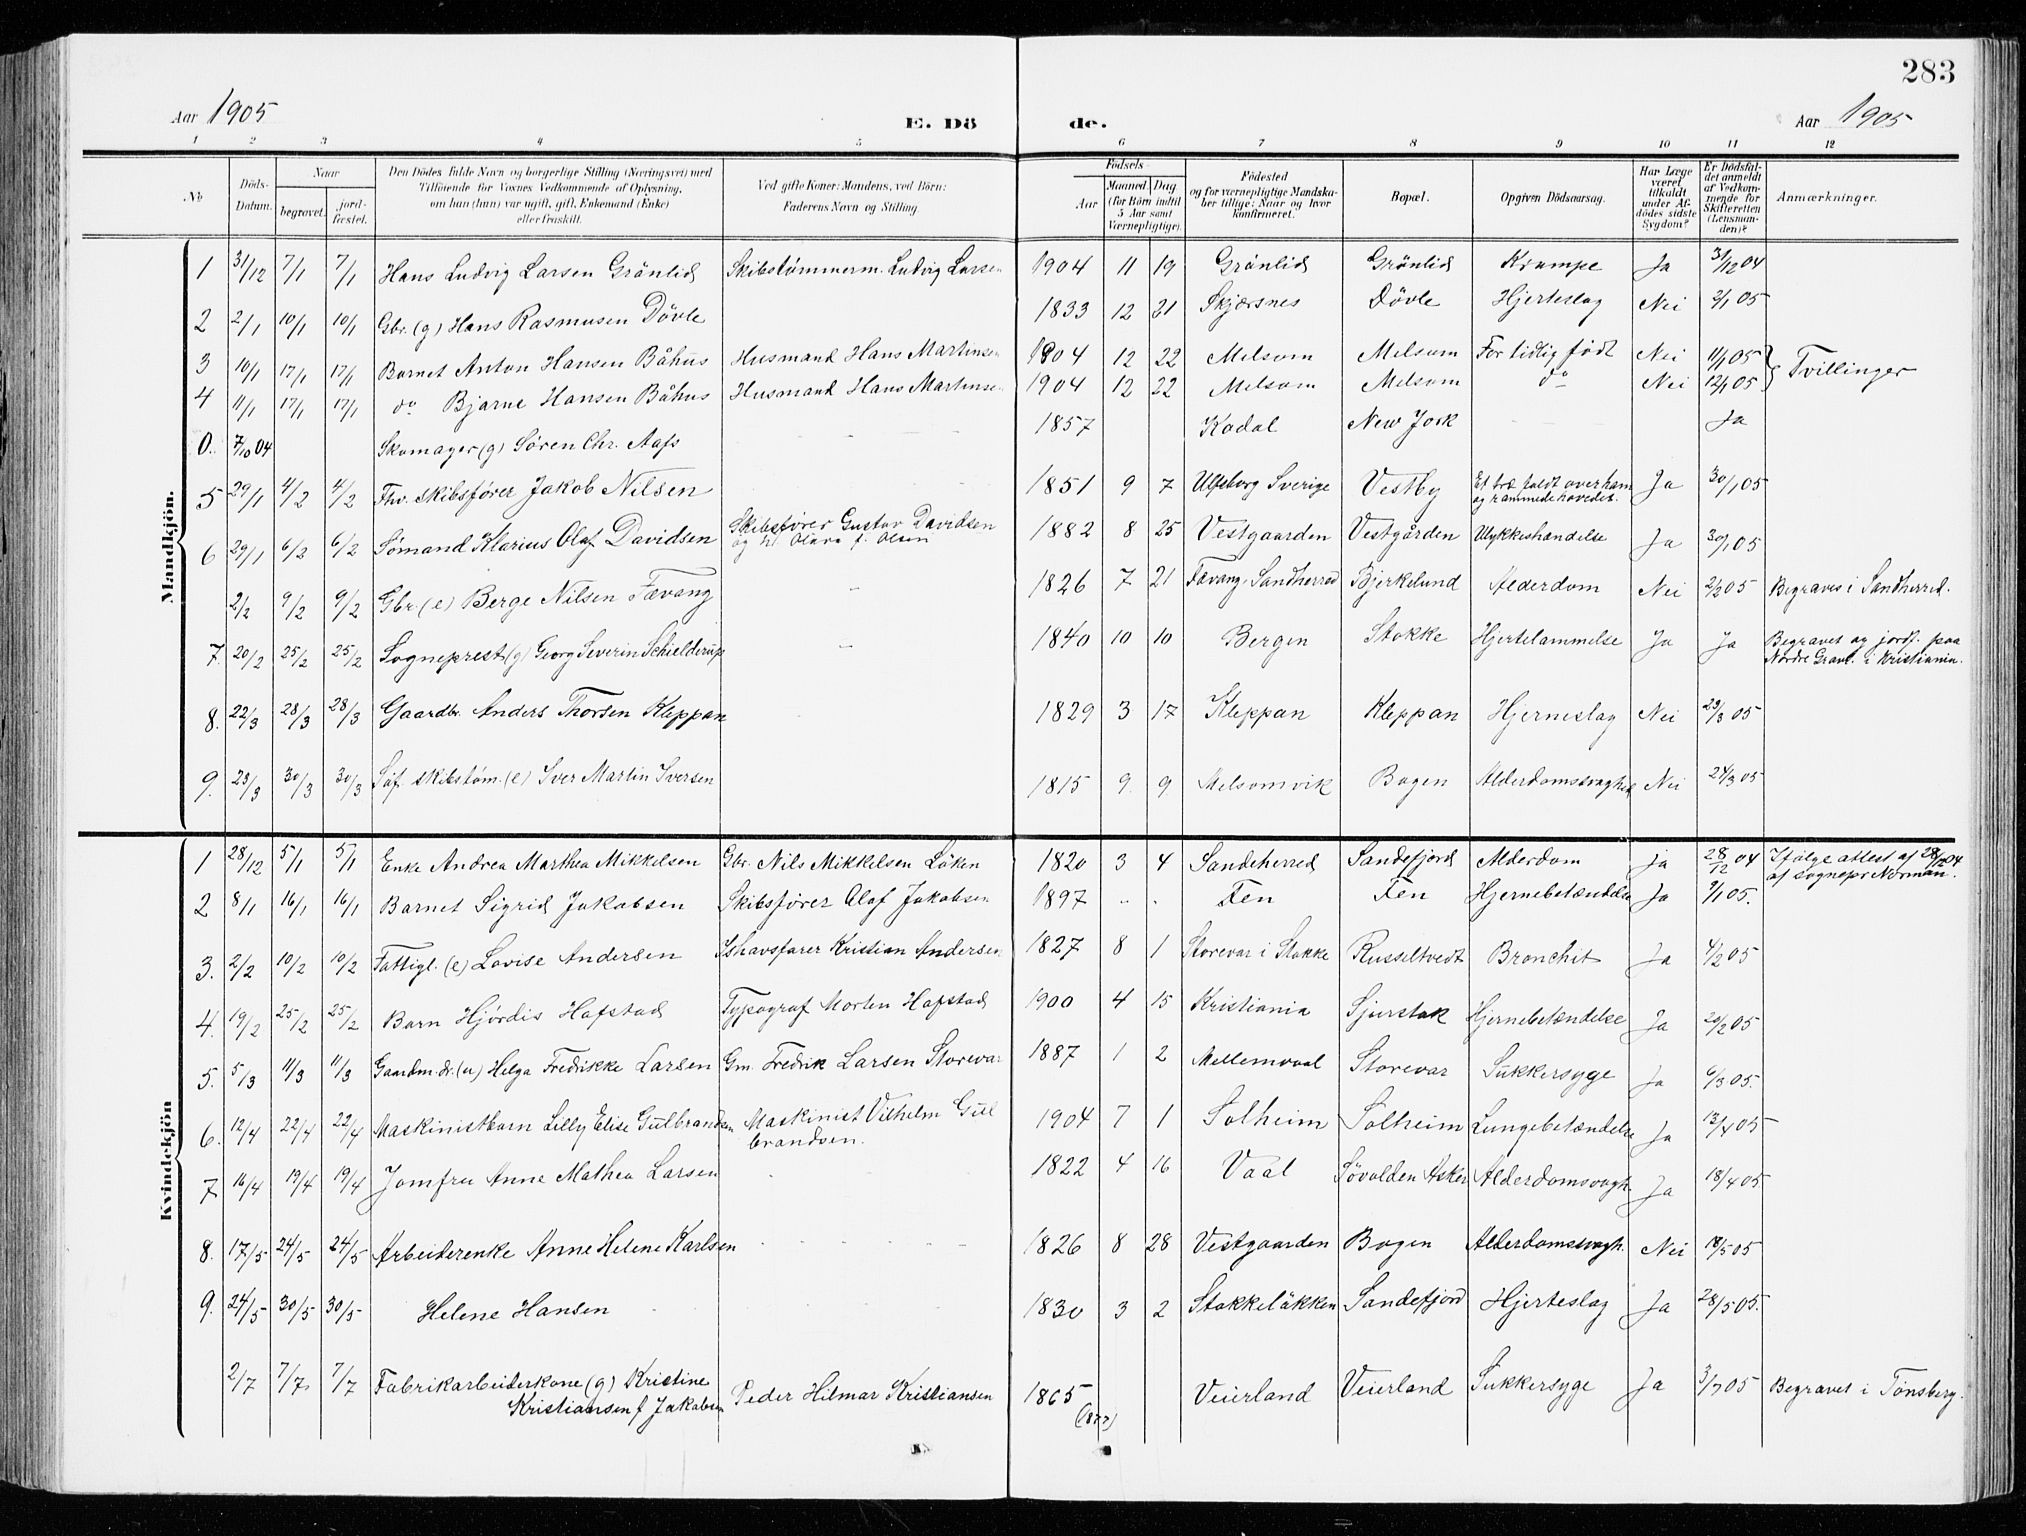 283
Aar 1905
E. Dö de.
Aar 1905
1 2 3 4 5 6 7 8 9 10 11 12
No
Döds-Datum.
Naar
begravet.
jord-festet.
Den Dödes fulde Navn og borgerlige Stilling (Næringsvei) med
Tilföiende for Voxnes Vedkommende af Oplysning,
om han (hun) var ugift, gift, Enkemand (Enke)
eller fraskilt.
Ved gifte Koner: Mandens, ved Börn:
Faderens Navn og Stilling
Födsels-
Aar
Maaned. Dag
(for Börn indtil
5 Aar samt
Værnepligtige)
Födested
og for værnepligtige Mandska-
ber tillige: Naar og hvor
konfirmeret.
Bopæl.
Opgiven Dödsaarsag.
Har Læge
været
tilkaldt
under Af-
dödes sidste
Sygdom?
Er Dödsfal-
det anmeldt
af Vedkom-
mende for
Skifteretten
(Lensman-
den)?
Anmærkninger.
Mandkjön.
1 31/12 7/1 7/1 Hans Ludvig Larsen Grönlid Skibstømmerm. Ludvig Larsen 1904 11 19 Grönlid Grönlid Krampe Ja 31/12 04
2 2/1 10/1 10/1 Gbr. (g) Hans Rasmusen Dövle 1833 12 31 Skjærsnes Dövle Hjerteslag Nei 3/1 05
3 10/1 17/1 17/1 Barnet Anton Hansen Båhus Husmand Hans Martinsen 1904 12 22 Melsom Melsom For tidlig født Nei 11/1 05 Tvillinger
4 11/1 17/1 17/1 do Bjarne Hansen Båhus Husmand Hans Martinsen 1904 12 22 Melsom Melsom do Nei 12/1 05
0. 7/10 04 Skomager (g) Sören Chr. Aafs 1857 Kodal New York Ja
5 29/1 4/2 4/2 Fhv. skibsfører Jakob Nilsen 1851 9 7 Ulfsborg Sverige Vestby Et træ faldt over ham og rammede hovedet. Ja 30/1 05
6 29/1 6/2 6/2 Sømand Klarius Olaf Davidsen Skibsfører Gustav Davidsen og h. Olava f. Olsen 1882 8 25 Vestgaarden Vestgården Ulykkeshændelse Ja 30/1 05
2/2 9/2 9/2 Gbr. (e) Berge Nilsen Fævang 1826 7 21 Fævang, Sandherred Bjerkelund Alderdom Nei 2/2 05 Begraves i Sandherred.
7. 20/2 25/2 25/2 Sogneprest (g) Georg Severin Schielderup 1840 10 10 Bergen Stokke Hjertelammelse Ja Ja Begravet og jordf. paa Nordre Gravl. i Kristiania.
8. 22/3 28/3 28/3 Gaardbr. Anders Thorsen Kleppan 1829 3 17 Kleppan Kleppan Hjerneslag Nei 23/3 05
9. 23/3 30/3 30/3 Söf. skibstøm. (e) Iver Martin Iversen 1815 9. 9. Melsomvik Bogen Alderdomssvaghed Nei 24/3 05
Kvindekjön
1 28/12 5/1 5/1 Enke Andrea Marthea Mikkelsen Gbr. Nils Mikkelsen Löken 1820 3 4 Sandeherred Sandefjord Alderdom Ja 28/12 04 Ifølge attest af 28/12 04 af sognepr Norman.
2 8/1 16/1 16/1 Barnet Sigrid Jakobsen Skibsfører Olaf Jakobsen 1897 Fen Fen Hjernebetændelse Ja 9/1 05.
3. 2/2 10/2 10/2 Fattigl. (e) Lovise Andersen Ishavsfarer Kristian Andersen 1827 8 1 Storevar i Stokke Russeltvedt Bronchit Ja 4/2 05
4. 19/2 25/2 25/2 Barn Hjørdis Hafstad Typograf Morten Hafstad 1900 4 15 Kristiania Sjuestok Hjernebetændelse Ja 20/2 05
5. 5/3 11/3 11/3 Gaardm. dr. (u) Helga Fredrikke Larsen Gm. Fredrik Larsen Storevar 1887 1 2 Mellemvaal Storevar Sukkersyge Ja 6/3 05.
6. 12/4 22/4 22/4 Maskinistbarn Lilly Elise Gulbrandsen Maskinist Vilhelm Gulbrandsen. 1904 7 1 Solheim Solheim Lungebetændelse Ja 13/4 05
7 16/4 19/4 19/4 Jomfru Anne Mathea Larsen 1822 4 16 Vaal Sövolden Asker Alderdomsvagh. Ja 18/4 05
8. 17/5 24/5 24/5 Arbeiderenke Anne Helene Karlsen 1826 8 28 Vestgaarden Bogen Alderdomssvagh. Nei 18/5 05
9. 24/5 30/5 30/5 Helene Hansen 1830 3 2 Stokkeløkken Sandefjord Hjerteslag Ja 28/5 05.
2/7 7/7 7/7 Fabrikarbeiderkone (g) Kristine Kristiansen f Jakobsen Peder Hilmar Kristiansen 1865 Veierland Veierland Sukkersyge Ja 3/7 05 Begravet i Tönsberg.